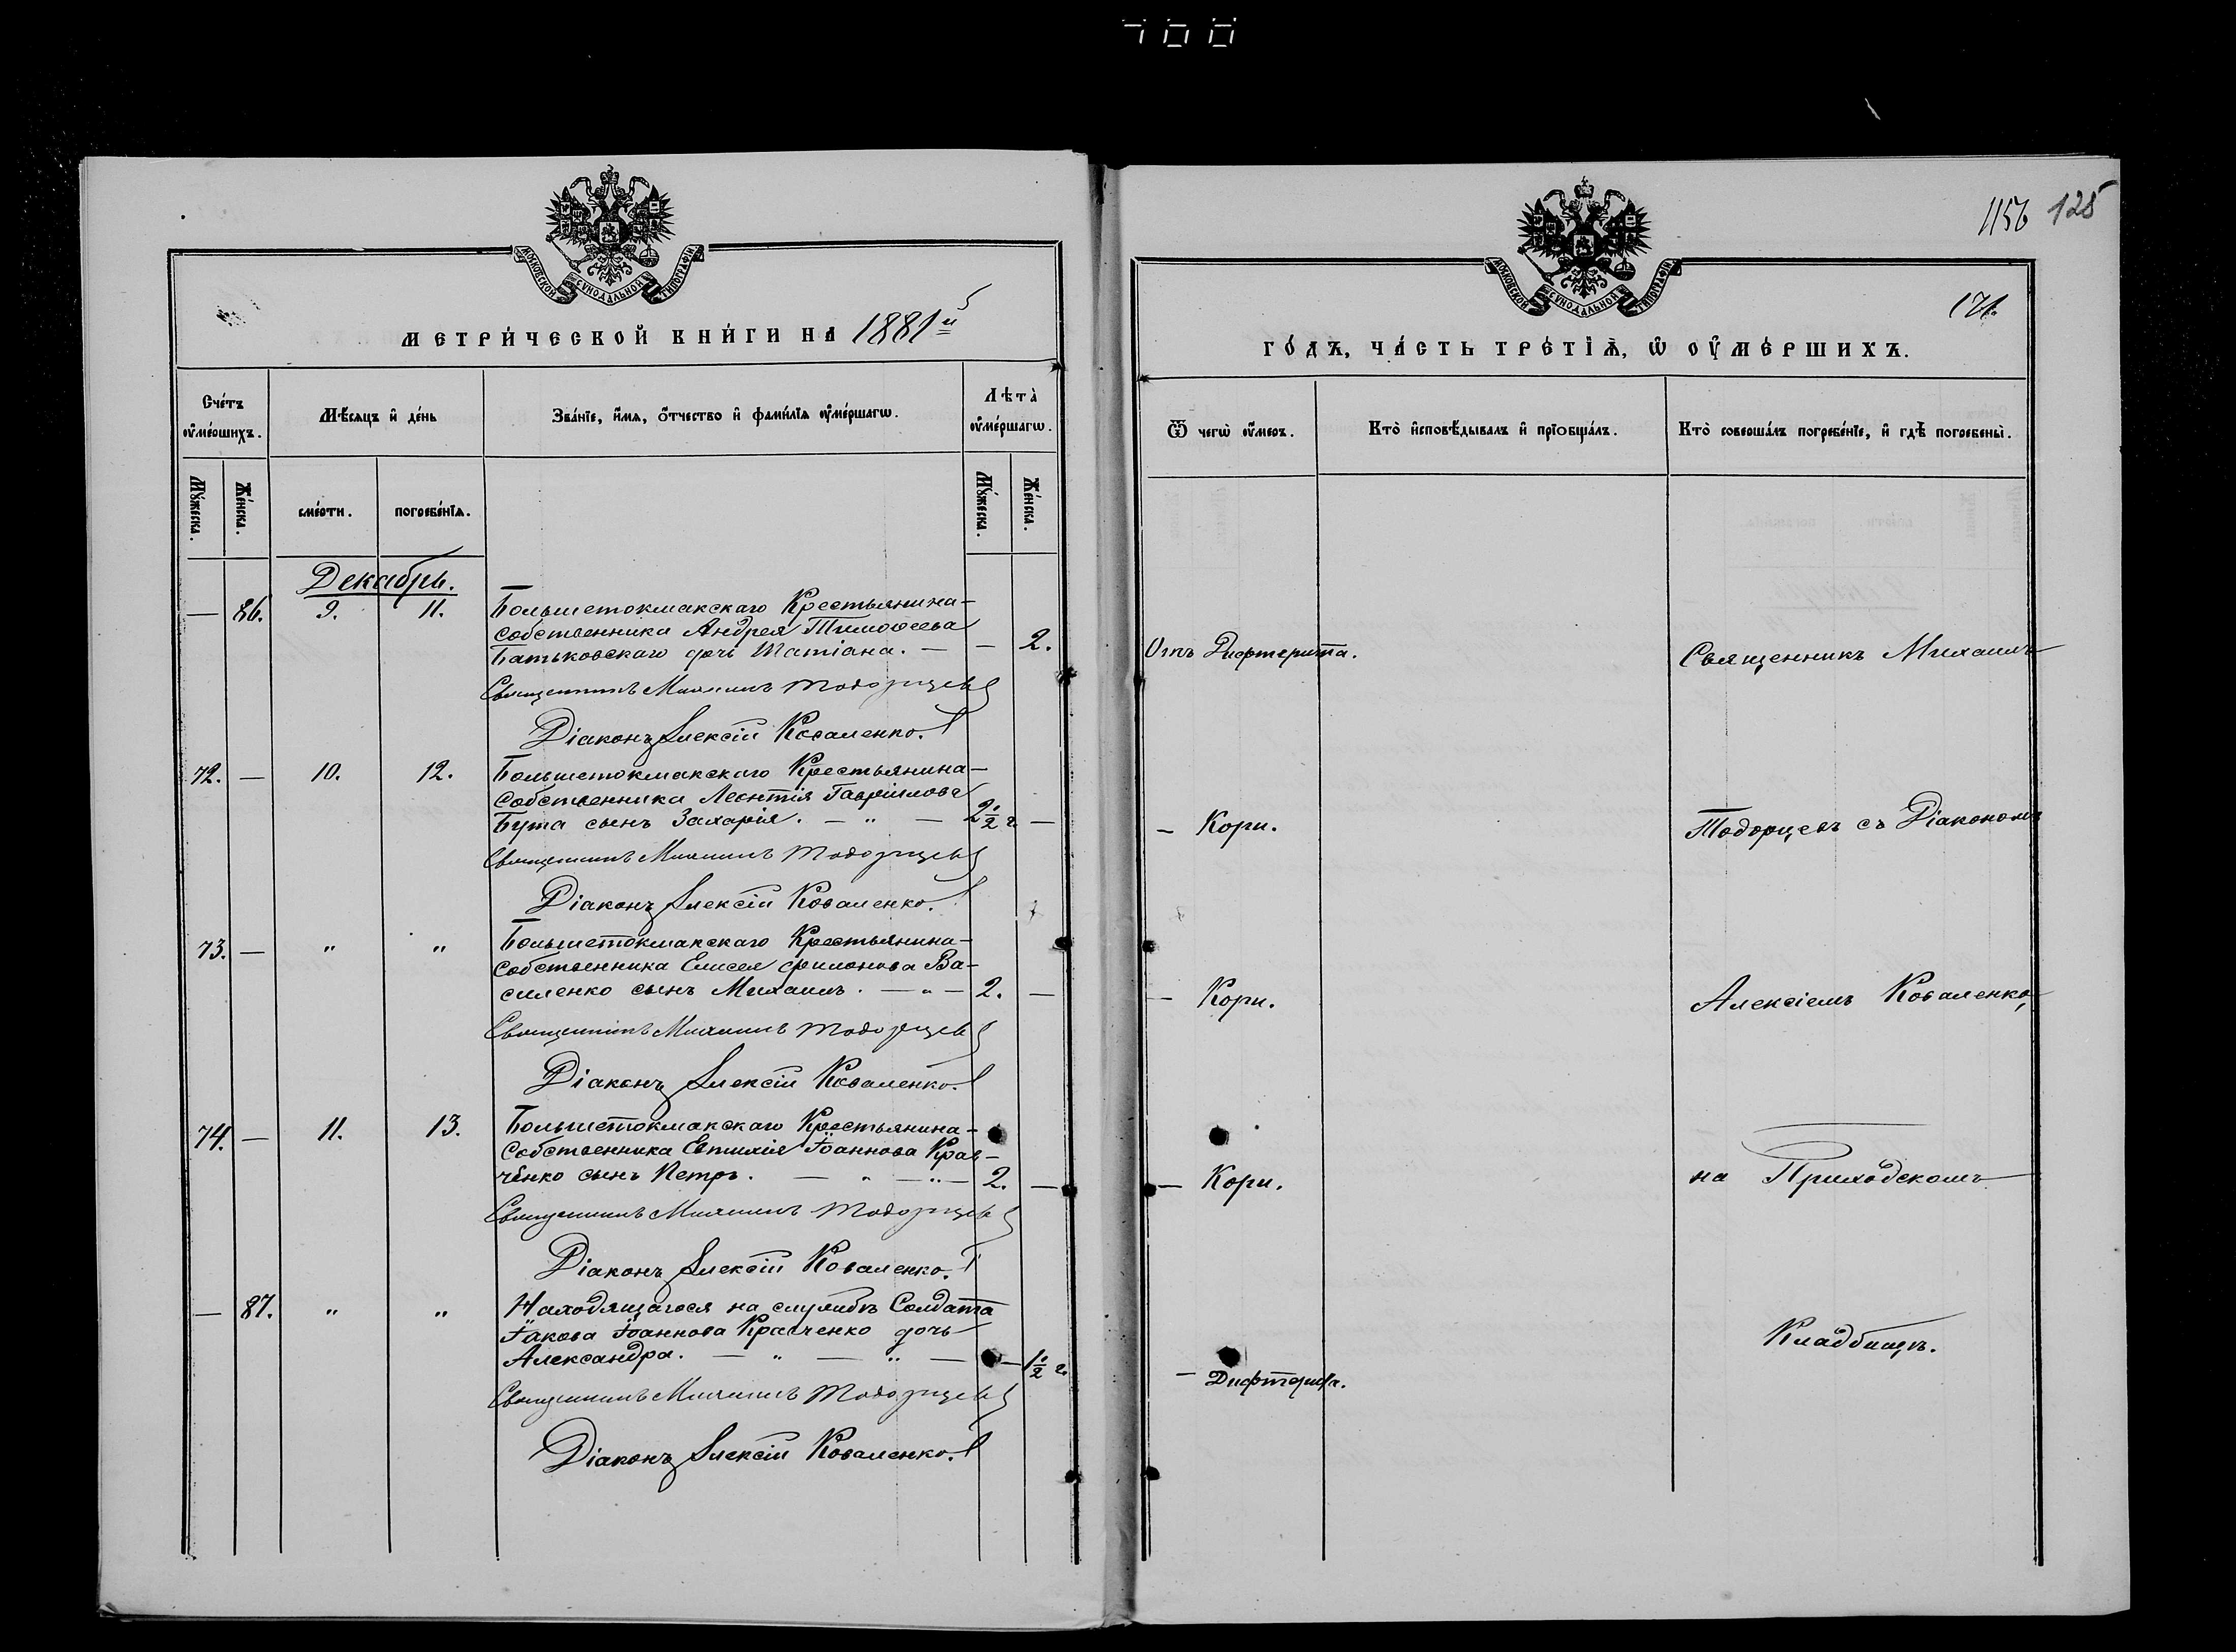 700
1156 125
МОСКОВСКОЙ СУНОДАЛЬНОЙ ТИПОГРАФІИ
МЕТРИ́ЧЕСКОЙ КНИ́ГИ НА 1881й
Счéтъ ᲂу҆мéршихъ.
Мѣ́сяцъ и҆ дéнь
Звáнїе, и҆́мя, ѻ҆́тчество и҆ фамѝлїя ᲂу҆мéршагѡ.
Лѣта̀ ᲂу҆мéршагѡ.
Мýжеска.
Жéнска.
смéрти.
погребéнїя.
Мýжеска.
Жéнска.
Декабрь.
— 86. 9. 11. Большетокмакскаго Крестьянина-
собственника Андрея Тимоѳеева
Батьковскаго дочь Татіана. — — 2.
Священникъ Михаилъ Тодорцевъ
Діаконъ Алексій Коваленко.
72. — 10. 12. Большетокмакскаго Крестьянина-
Собственника Леонтія Гавріилова
Бута сынъ Захарія. — „ — 2½ г. —
Священникъ Михаилъ Тодорцевъ
Діаконъ Алексій Коваленко.
73. — „ „ Большетокмакскаго Крестьянина-
Собственника Елисея Филимонова Ва-
силенко сынъ Михаилъ. — „ — 2. —
Священникъ Михаилъ Тодорцевъ
Діаконъ Алексій Коваленко.
74. — 11. 13. Большетокмакскаго Крестьянина-
Собственника Евтихія Іоаннова Крав-
ченко сынъ Петръ. — „ — „ — 2. —
Священникъ Михаилъ Тодорцевъ
Діаконъ Алексій Коваленко.
— 87. „ „ Находящагося на службѣ Солдата
Іакова Іоаннова Кравченко дочь
Александра. — „ — „ — — 1½ г.
Священникъ Михаилъ Тодорцевъ
Діаконъ Алексій Коваленко.
МОСКОВСКОЙ СУНОДАЛЬНОЙ ТИПОГРАФІИ
ГÓДЪ, ЧÁСТЬ ТРÉТЇЯ, Ѡ҆ ОУ҆МÉРШИХЪ.
Ѿ чегѡ̀ ᲂу҆́меръ.
Ктò и҆сповѣ́дывалъ и҆ прїобщáлъ.
Ктò совершáлъ погребéнїе, и҆ гдѣ̀ погребены̀.
Отъ Дифтерита.
Священникъ Михаилъ
— Кори.
Тодорцевъ съ Діакономъ
— Кори.
Алексіемъ Коваленко,
— Кори.
на Приходскомъ
— Дифтерита.
Кладбищѣ.